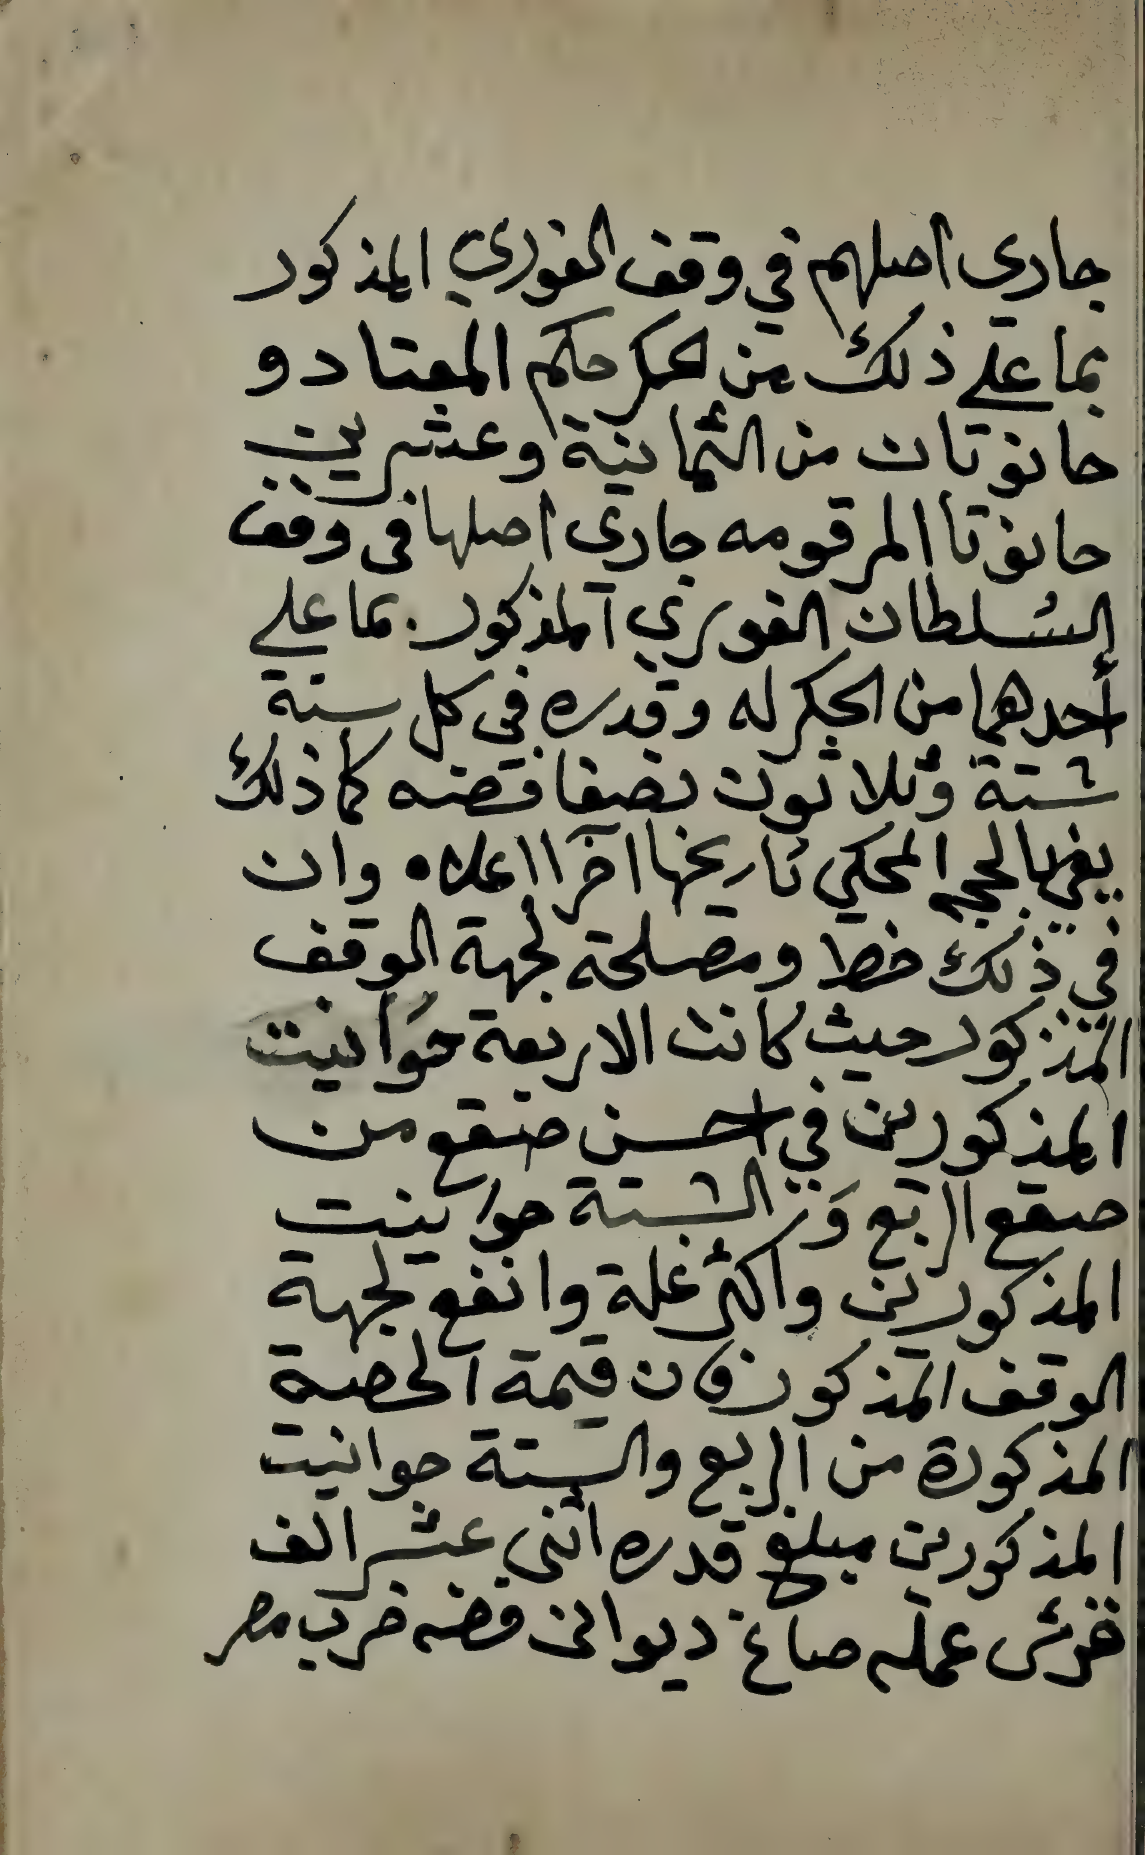 جاري اصلهم في وقف الغوري المذكور
بما على ذلك من الحكر حكم المعتاد و
حانوتان من الثمانية وعشرين
حانوتا المرقومه جاري اصلها في وقف
السلطان الغوري المذكور بما على
أحدهما من الحكر له وقدره في كل سنة
ستة وثلاثون نصفا فضه كما ذلك
بالحجه المحكي تاريخها اخرا اعلاه وان
في ذلك خط ومصلحة لجهة الوقف
المذكور حيث كانت الاربعة حوانيت
المذكورين في احسن صقع من
صقع الربع و الستة حوانيت
المذكورين واكثر غلة وانفع لجهة
الوقف المذكور وان قيمة الحصة
المذكورة من الربع والستة حوانيت
المذكورين مبلغ قدره اثنى عشر الف
غرش عمله صاغ ديوانى فضه ضرب مصر